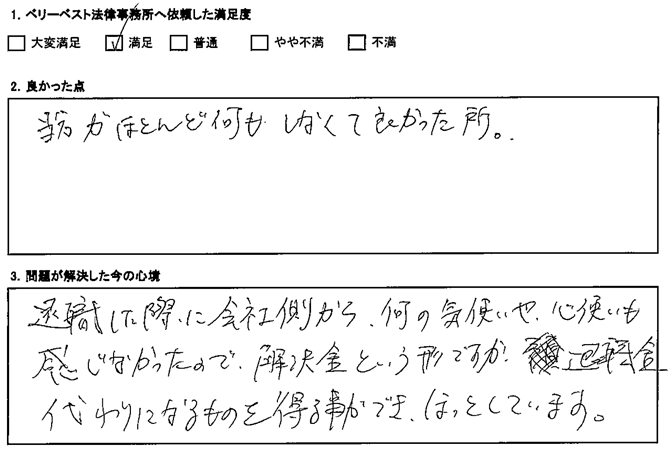 1. ベリーベスト法律事務所へ依頼した満足度
□ 大変満足 ☑ 満足 □ 普通 □ やや不満 □ 不満
2. 良かった点
がほとんど何もしなくて良かった所。
3. 問題が解決した今の心境
退職した際に会社側から、何の気使いや、心使いも
感じなかったので、解決金という形ですが、退職金
代わりになるものを得る事ができ、ほっとしています。